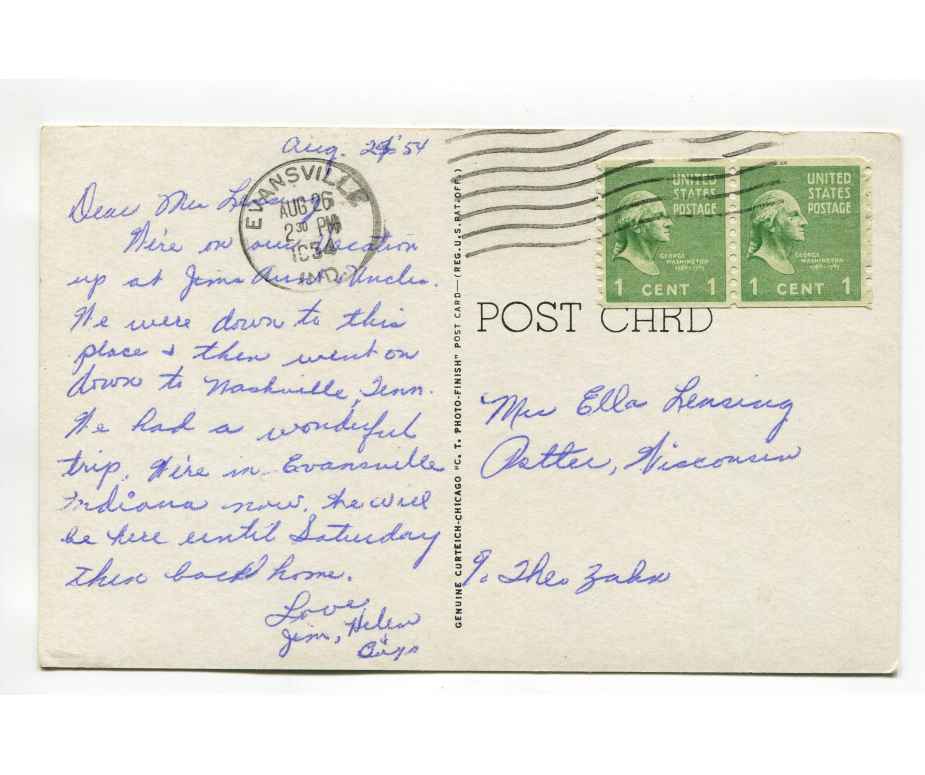 Aug. '54
Dear Mrs
We're on our vacation
up at Jims Aunt Uncles.
We were down to this
place & then went on
down to Nashville, Tenn.
We had a wonderful
trip. We're in Evansville
Indiana now. We will
be here until Saturday
then back home.
Love
Jim, Helen
& Boys
EVANSVILLE
AUG 26
2 30 PM
1954
IND.
GENUINE CURTEICH-CHICAGO "C. T. PHOTO-FINISH" POST CARD—(REG. U. S. PAT. OFF.)
UNITED
STATES
POSTAGE
GEORGE
WASHINGTON
1 CENT 1
UNITED
STATES
POSTAGE
GEORGE
WASHINGTON
1 CENT 1
POST CARD
Mrs Ella Lensing
Wisconsin
% Theo Zahn